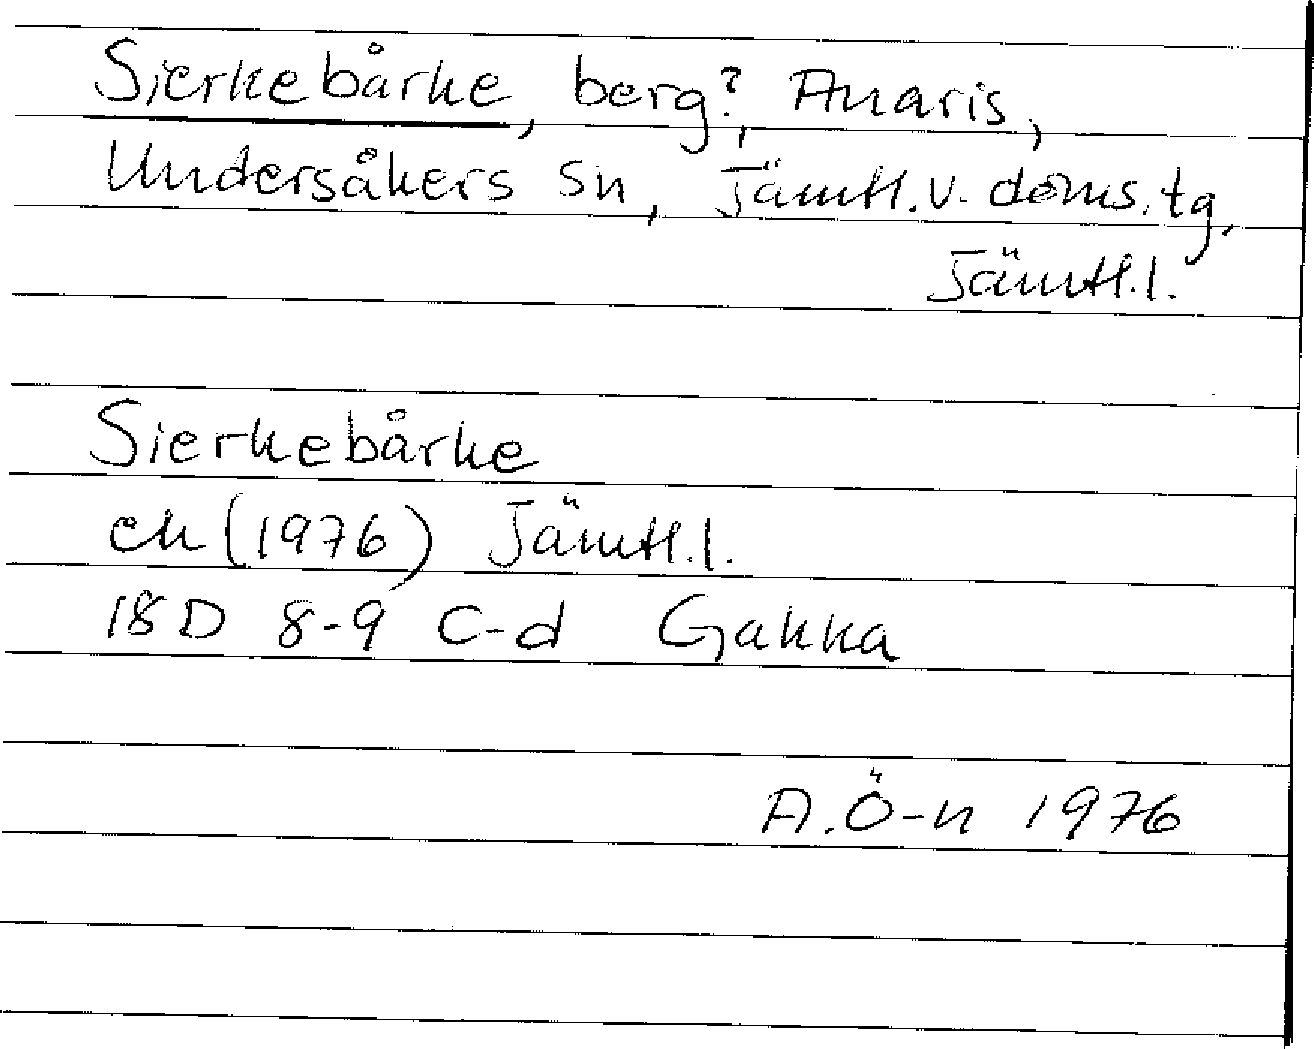 Sierkebårke, berg?, Anaris,
Undersåkers sn, Jämtl.v. doms.tg,
Jämtl.l.
Sierkebårke
ek (1976) Jämtl.l.
18D 8-9 c-d Gakka
A.Ö-n 1976